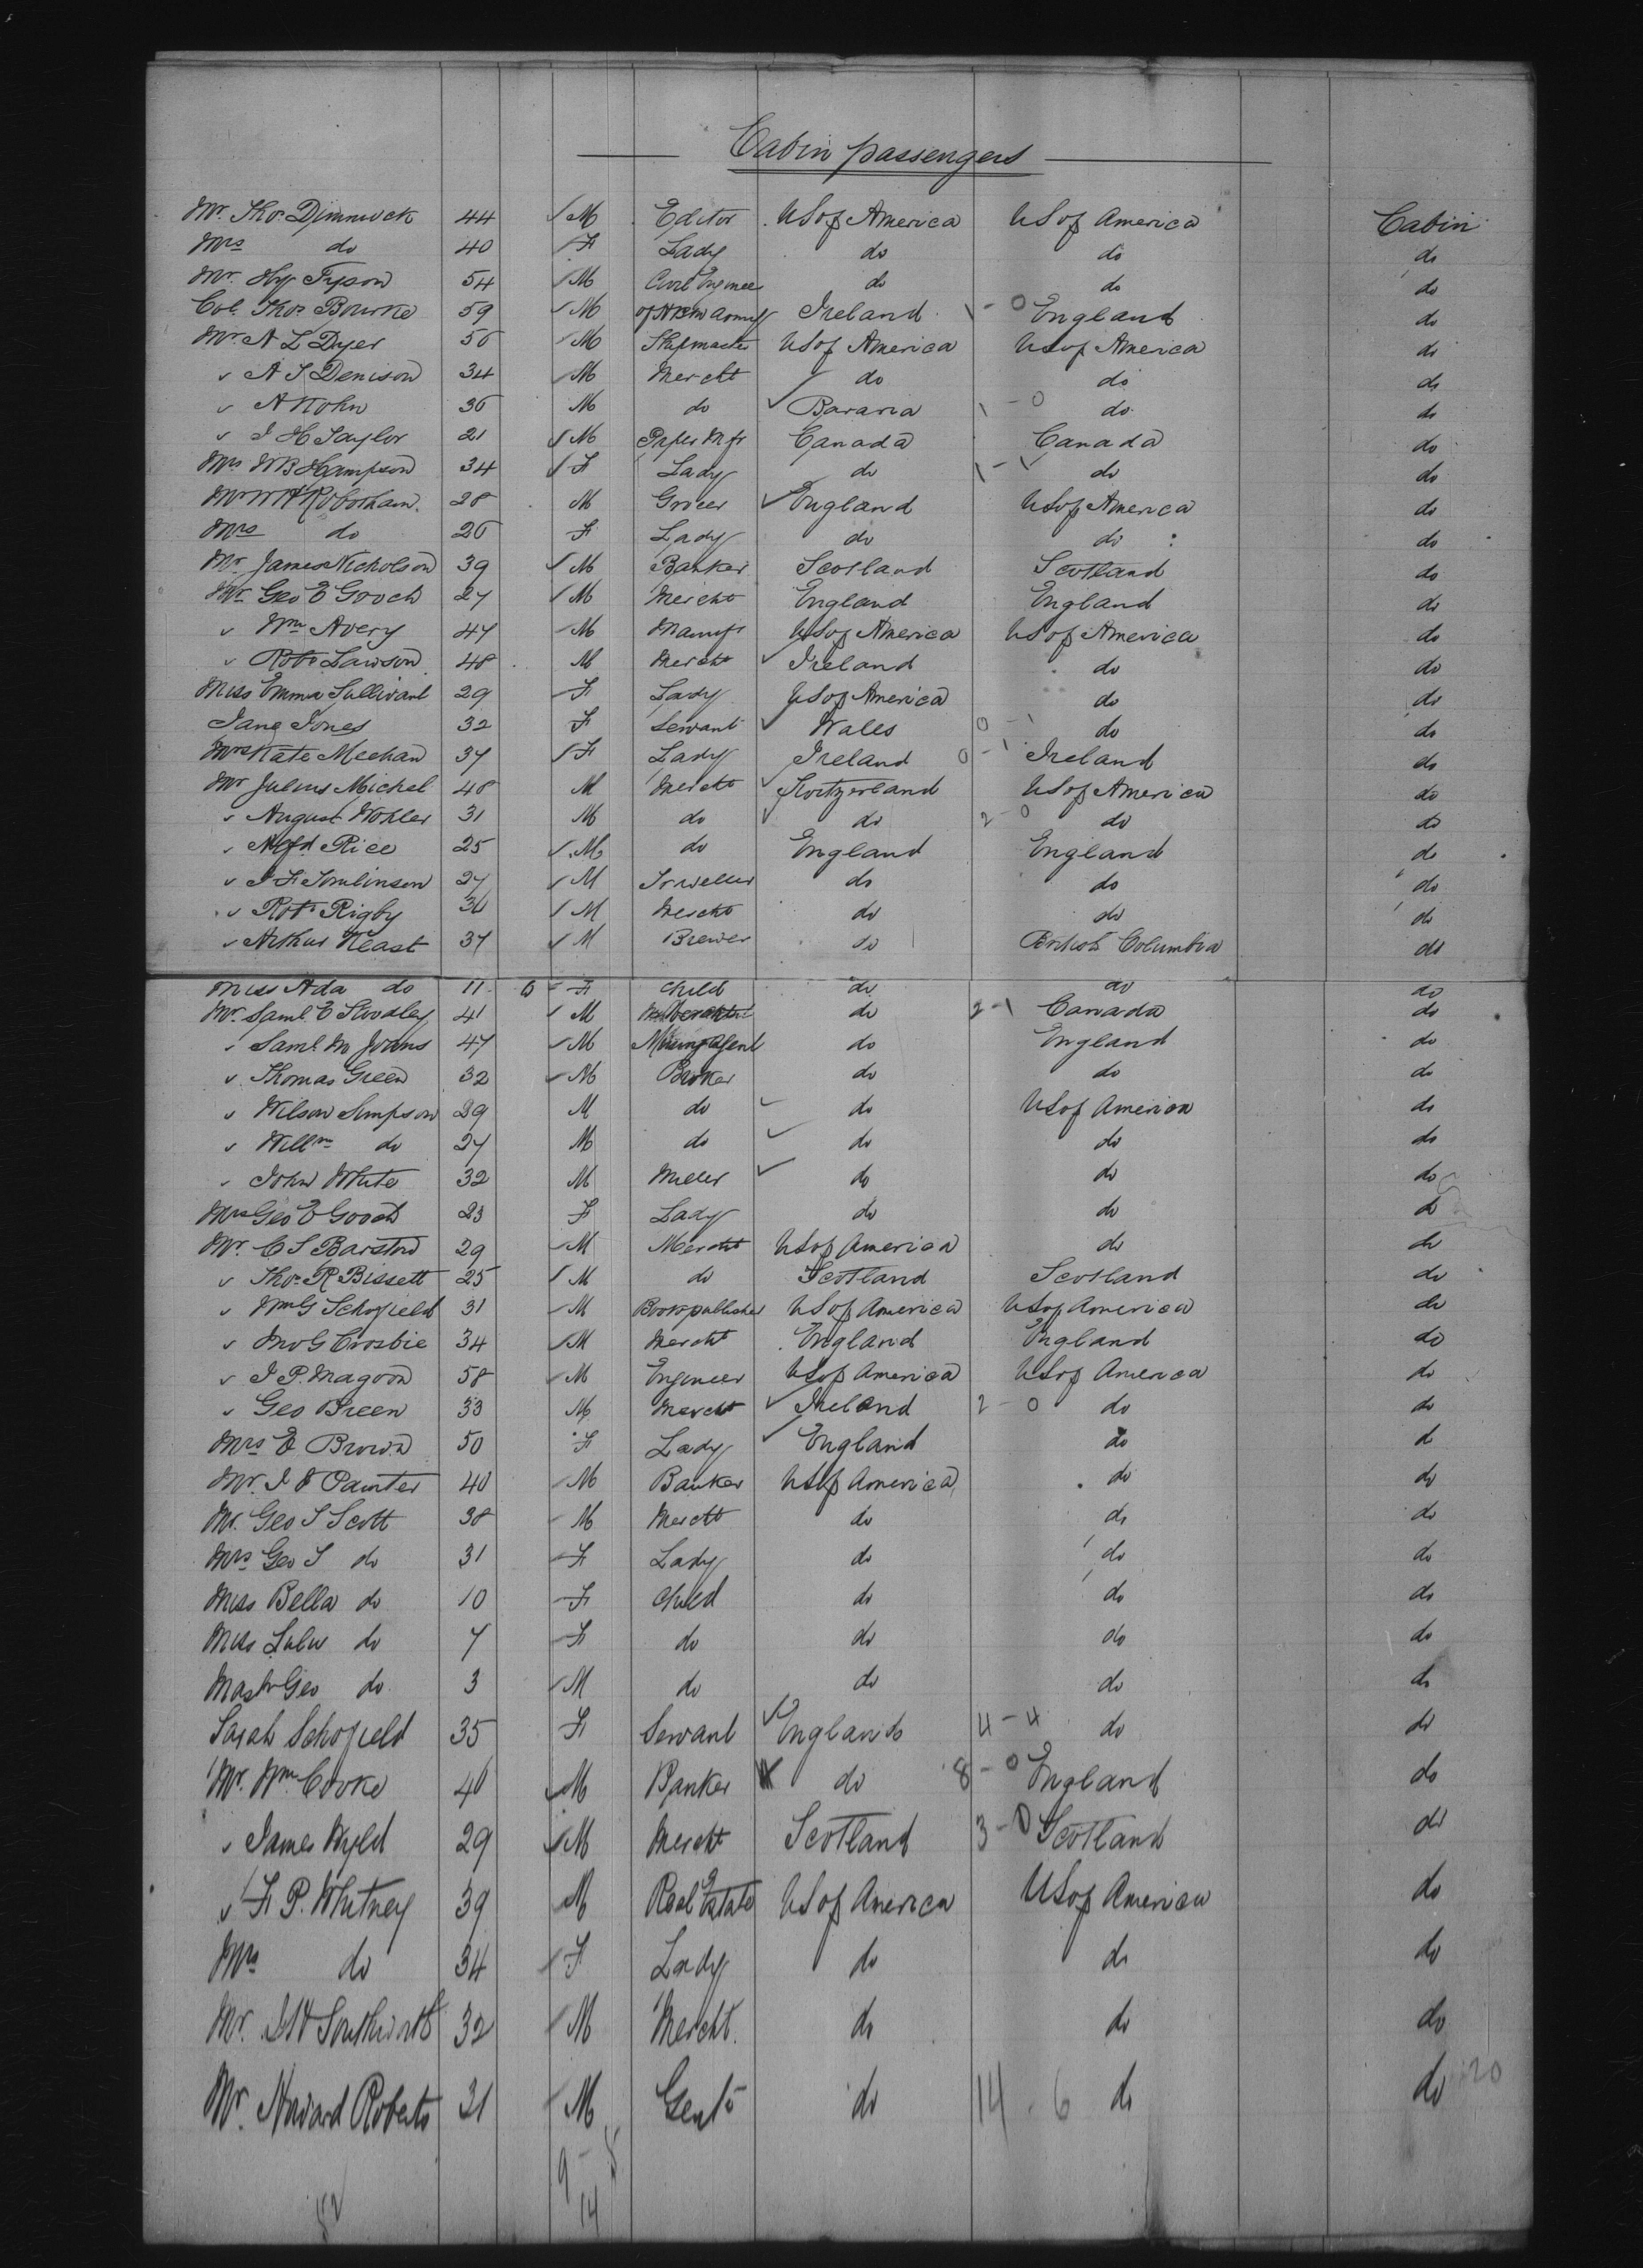 Cabin passengers
Mr. Thos. Dimmock 44 M Editor US of America US of America Cabin
Mrs do 40 F Lady do do do
Mr. Hy Tyson 54 M Civil Engineer do do do
Col. Thos. Bourke 59 M Ireland 1 - 0 England do
Mr A L Dyer 56 M Shipmaster US of America US of America do
" A S Denison 34 M Mercht do do do
" A Kohn 36 M do Bavaria 1 - 0 do do
" J H Taylor 21 M Paper Mfr Canada Canada do
Mrs W B Hampson 34 F Lady do 1 - 1 do do
Mr W H Robotham 28 M Grocer England US of America do
Mrs do 26 F Lady do do do
Mr. James Nicholson 39 M Banker Scotland Scotland do
Mr. Geo E Gooch 27 M Mercht England England do
" Wm Avery 47 M Manufr US of America US of America do
" Robt Lawson 48 M Mercht Ireland do do
Miss Emma Sullivant 29 F Lady US of America do do
Jane Jones 32 F Servant Wales 0 - 1 do do
Mrs Kate Meehan 37 F Lady Ireland 0 - 1 Ireland do
Mr Julius Michel 48 M Mercht Switzerland US of America do
" August Wohler 31 M do do 2 - 0 do do
" Alfd. Rice 25 M do England England do
" J F Tomlinson 27 M Jeweller do do do
" Robt Rigby 36 M Mercht do do do
" Arthur Keast 37 M Brewer do British Columbia do
Miss Ada do 11 F Child do do do
Mr. Saml. E Stoodley 41 M do 2 - 1 Canada do
" Saml. M Johns 47 M Mining Agent do England do
" Thomas Green 32 M Broker do do do
" Wilson Simpson 29 M do do US of America do
" Willm do 27 M do do do do
" John White 32 M Miller do do do
Mrs Geo E Gooch 23 F Lady do do do
Mr. C S Barstow 29 M Mercht US of America do do
" Thos. R Bissett 25 M do Scotland Scotland do
" Wm G Schofield 31 M Book publisher US of America US of America do
" Jno G Crosbie 34 M Mercht England England do
" J P. Magoon 58 M Engineer US of America US of America do
" Geo Breen 33 M Mercht Ireland 2 - 0 do do
Mrs E Brown 50 F Lady England do do
Mr. J V Painter 40 M Banker US of America do do
Mr. Geo S Scott 38 M Mercht do do do
Mrs Geo S do 31 F Lady do do do
Miss Bella do 10 F Child do do do
Miss Lulu do 7 F do do do do
Mastr Geo do 3 M do do do do
Sarah Schofield 35 F Servant England 4 - 4 do do
Mr. Wm Cooke 40 M Banker do 8 - 0 England do
" James Wyld 29 M Mercht Scotland 3 - 0 Scotland do
" F. P. Whitney 39 M Real Estate US of America US of America do
Mrs do 34 F Lady do do do
Mr. Southworth 32 M Mercht. do do do
Mr. Howard Roberts 31 M Gent do 14 . 6 do do 20
9 -
14